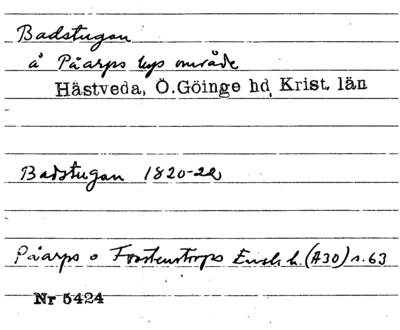 Badstugan
å Påarps bys område
Hästveda, Ö.Göinge hd, Krist. län
Badstugan 1820-22
Påarps o Forstenstorps Ensk. h. (A30) s. 63
Nr 5424